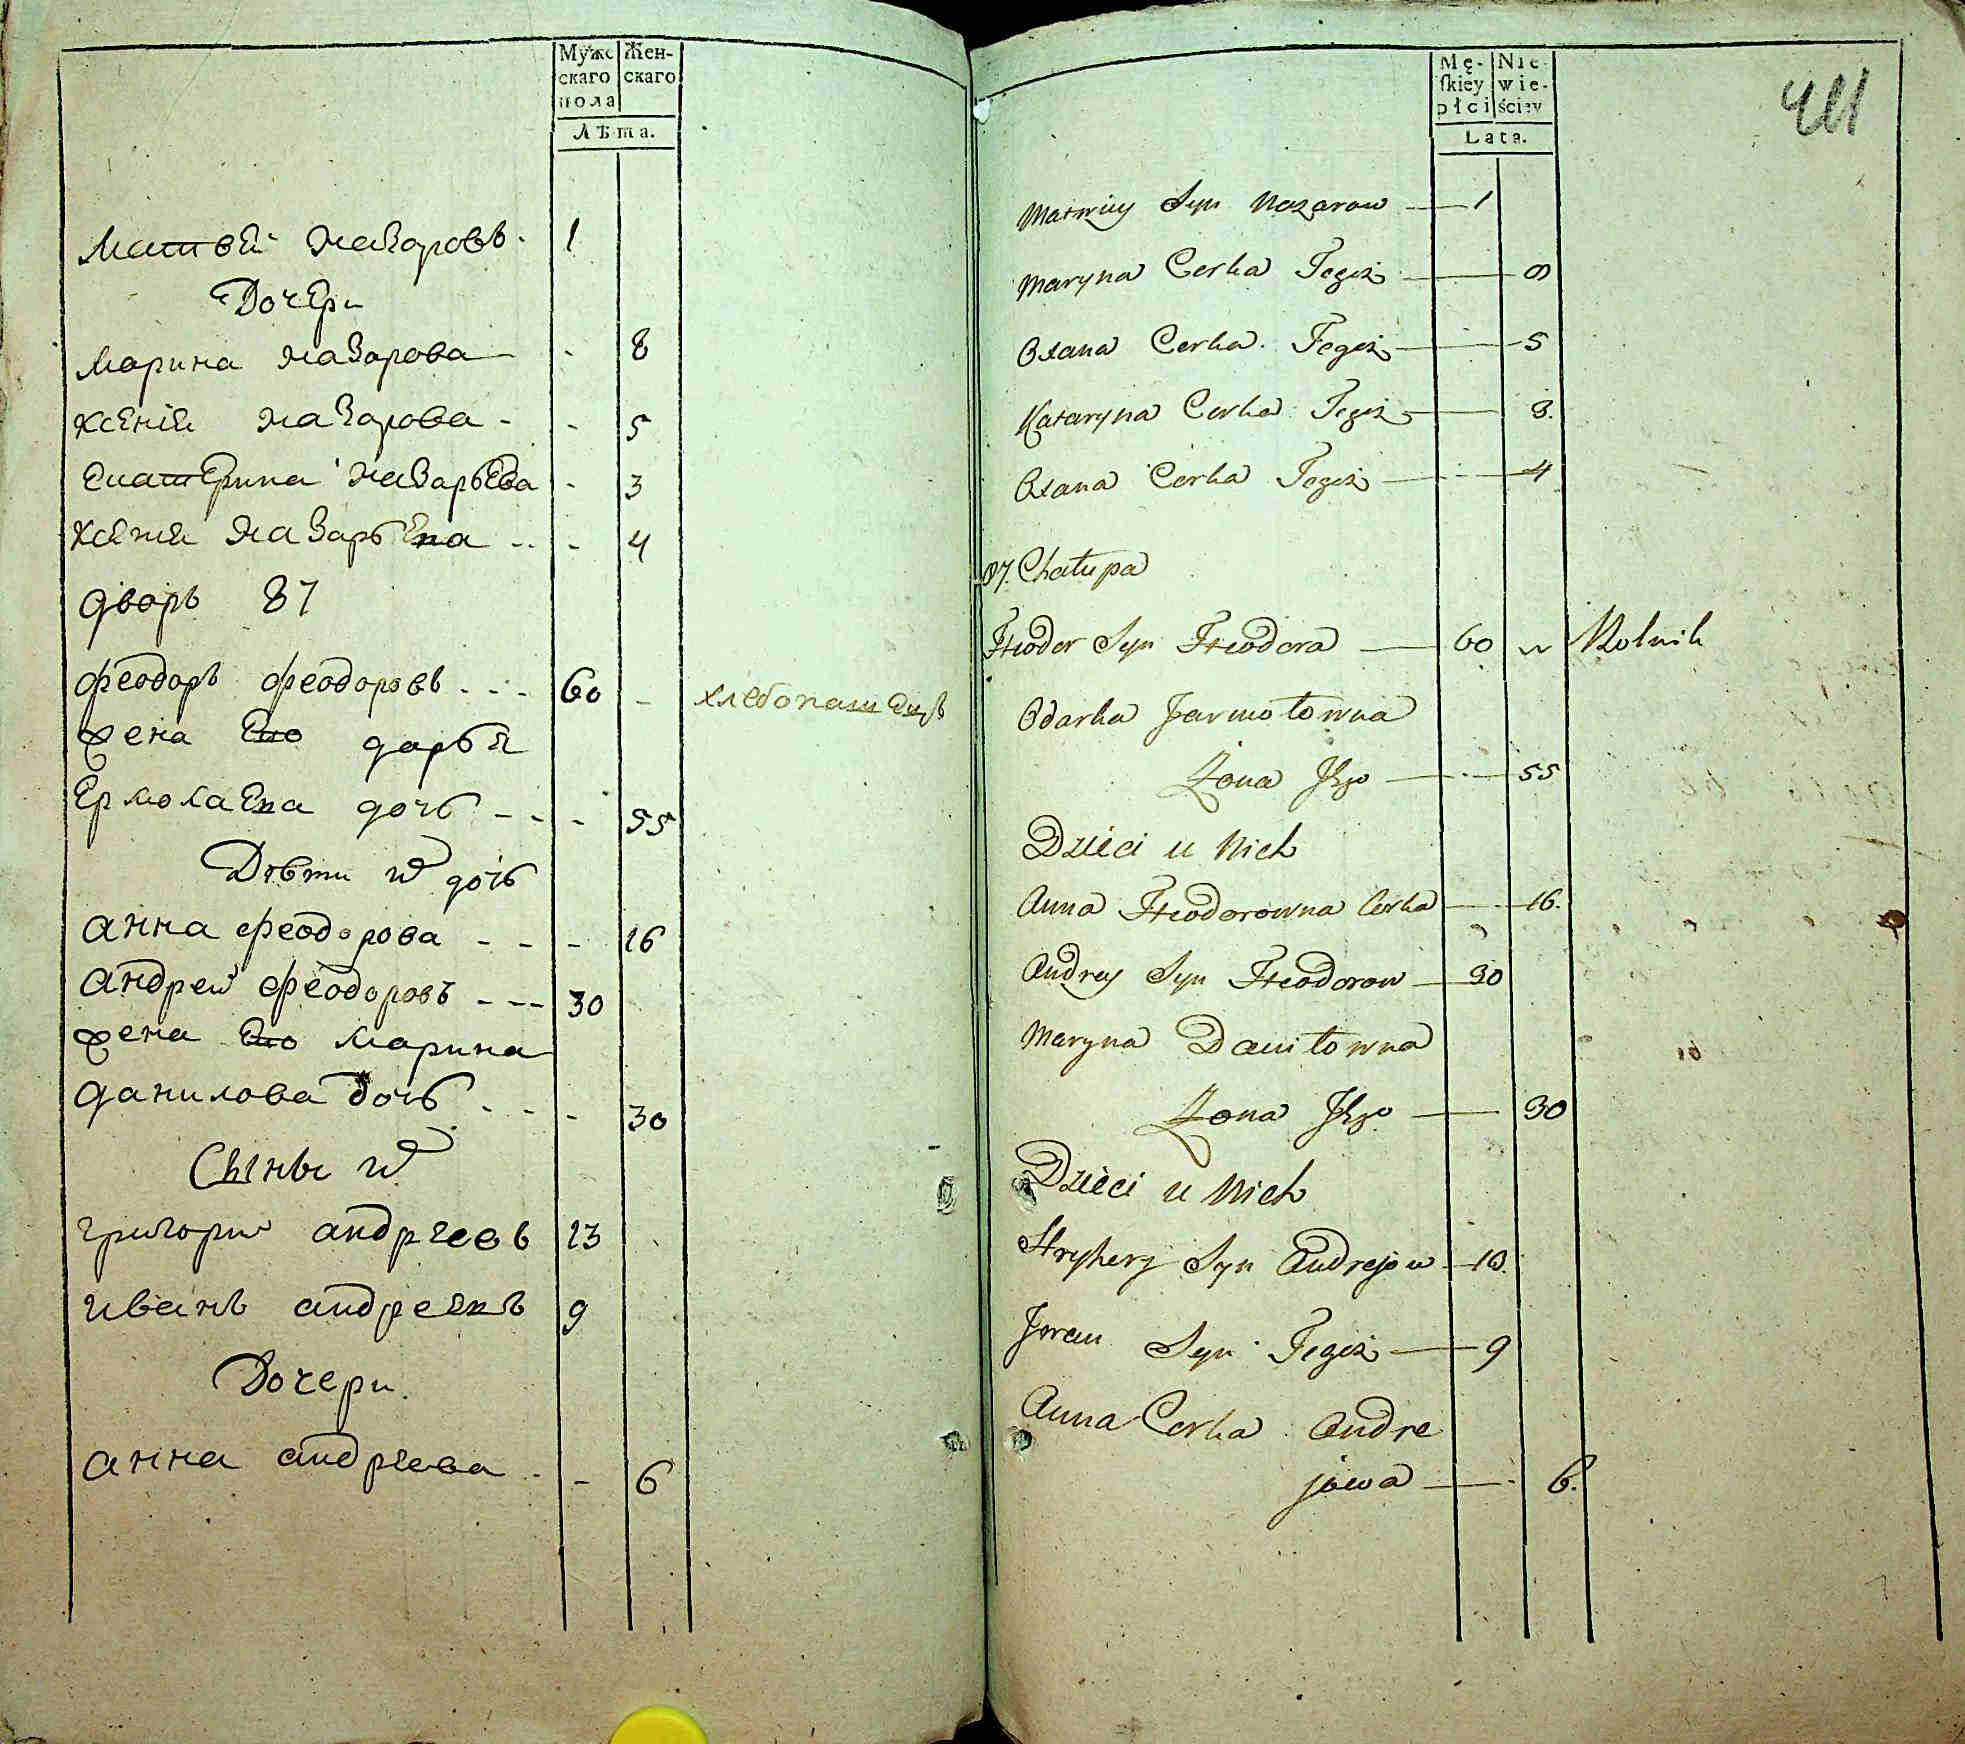 Мужс Жен-
скаго скаго
пола
Лѣта.
Матвѣй Назаровъ. 1
Дочери
Марина Назарова - 8
Ксенiя Назарова - - 5
Екатерина Назарьева - 3
Ксенiя Назарьева - - 4
дворъ 87
Феодоръ Феодоровъ - - - 60 - хлебопашецъ
жена Его дарья
Ермолаева дочь - - - 55
Дѣти и дочь
Анна Феодорова - - - 16
Андрей Феодоровъ - - - 30
жена Его Марина
данилова дочь - - - 30
Сыны
григорий андреевъ 13
иванъ андреевъ 9
Дочери.
Анна андреева - - 6
Mę- Nie-
skiey wie-
płci ściey
Lata.
411
Matwiey Syn Nazarow — 1
Maryna Corka Tegoż — 8
Oxana Corka Tegoż — 5
Kataryna Corka Tegoż — 3.
Oxana Corka Tegoż — 4
87. Chałupa
Fteodor Syn Fteodora — 60 Rolnik
Odarka Jarmołowna
Żona Jego — 55
Dzieci u Nich
Anna Fteodorowna Corka — 16.
Andrey Syn Fteodorow — 30
Maryna Daniłowna
Żona Jego — 30
Dzieci u Nich
Hryhery Syn Andrejow — 13.
Iwan Syn Tegoż — 9
Anna Corka Andre
jowa — 6.